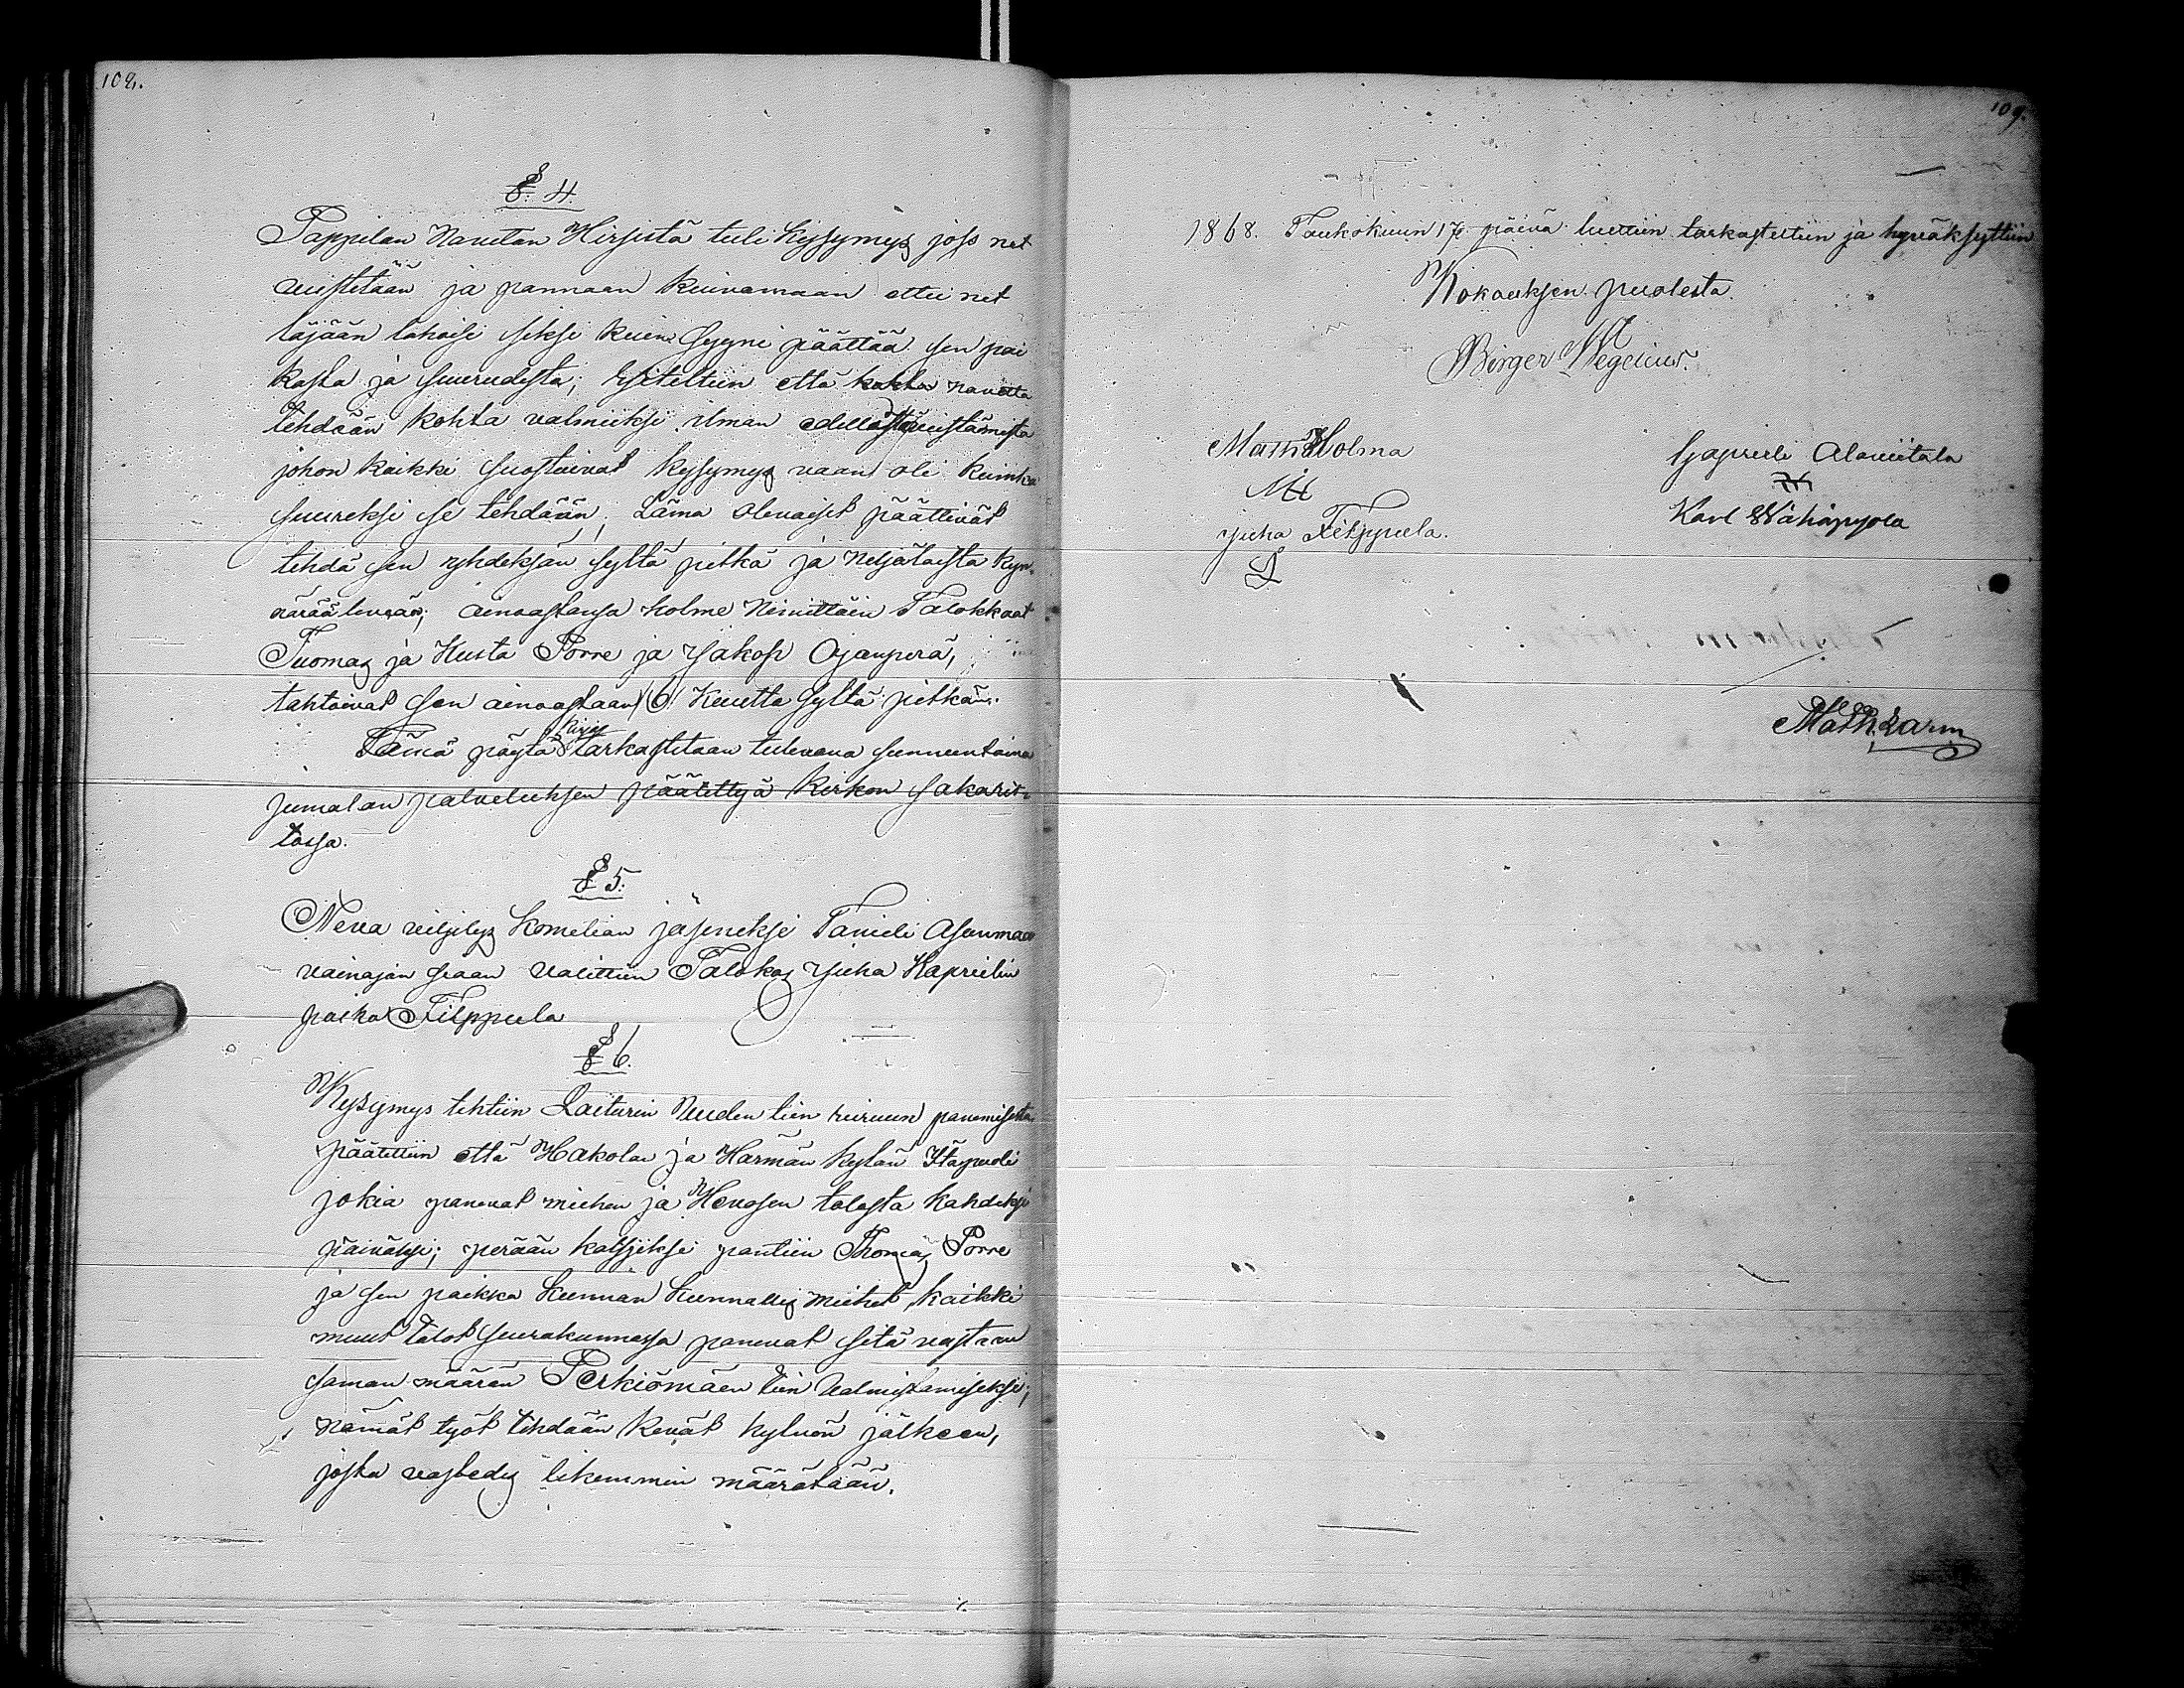 108.
§. 4.
Pappilan Navetan Hirsistä tuli kysymys joss net
auistetään ja pannaan kuivamaan ettei net
läjään lahoisi siksi kuin Syyni päättää sen pai
kasta ja suurudesta; Esiteltiin että kohta navetta
tehdään kohta valmiiksi ilman edellästä veistämistä
johon kaikki suostuivat kysymys vaan oli kuinka
suureksi se tehdään; Läsna olevaiset päättivät
tehdä sen yhdeksän syltä pitkä ja Neljätoista kyy-
närää leveän; ainoastansa kolme Nimittäin Talokkaat
Tuomas ja Kusta Porre ja Jakop Ojanperä,
tahtoivat sen ainoastaan (6) kuutta syltä pitkän.
Tämä pöytä kirja tarkastetaan tulevana sunnuntaina
jumalan palveluksen päätettyä kirkon sakaris-
tossa.
§ 5.
Neva viljelys kometian jäseneksi Tanieli Asunmaa
vainajan siaan valittiin Talokas Juha Kaprielin
poika Filppula
§ 6.
Kysymys tehtiin Laiturin Uuden tien kuiruun panemisesta
päätettiin että Hakolan ja Härmän kylän Itäpuoli
jokia panevat miehen ja Hevosen talosta kahdeksi
päiväksi; perään katsojeksi pantiin Thomas Porre
ja sen paikka kunnan kunnallis miehet, kaikki
muut talot seurakunnassa panevat sitä vastaan
saman määrän Perkiömäen tien valmistamiseksi;
nämät työt tehdään kevät kylvön jälkeen,
josta vastedes likemmin määrätään.
109.
1868. Toukokuun 17 päivä luettiin tarkasteltiin ja hyväksyttiin
Kokouksen puolesta.
Birger Wegelius.
Matti Holma
MH
Juha Filppula.
Gaprieli Alaviitala
Karl Wähäpyola
Math. Larm